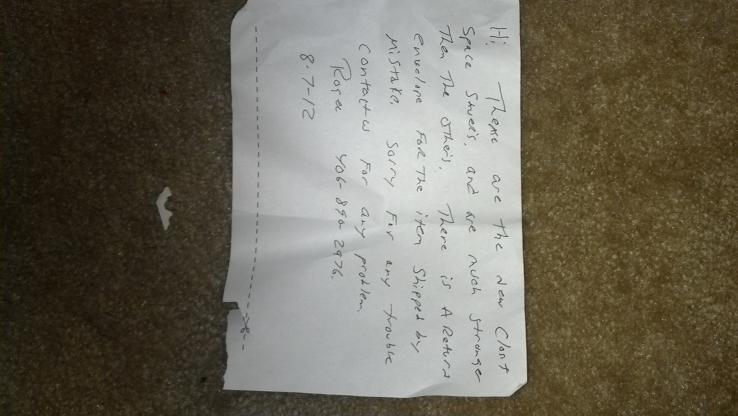 Hi. These are the New Clost
Space Saver's. and are much stronger
Then The other's. There is A Return
envelope For The item Shipped by
Mistake. Sorry For any trouble
Contact us For any problem.
Roger 406-890-2976.
8-7-12